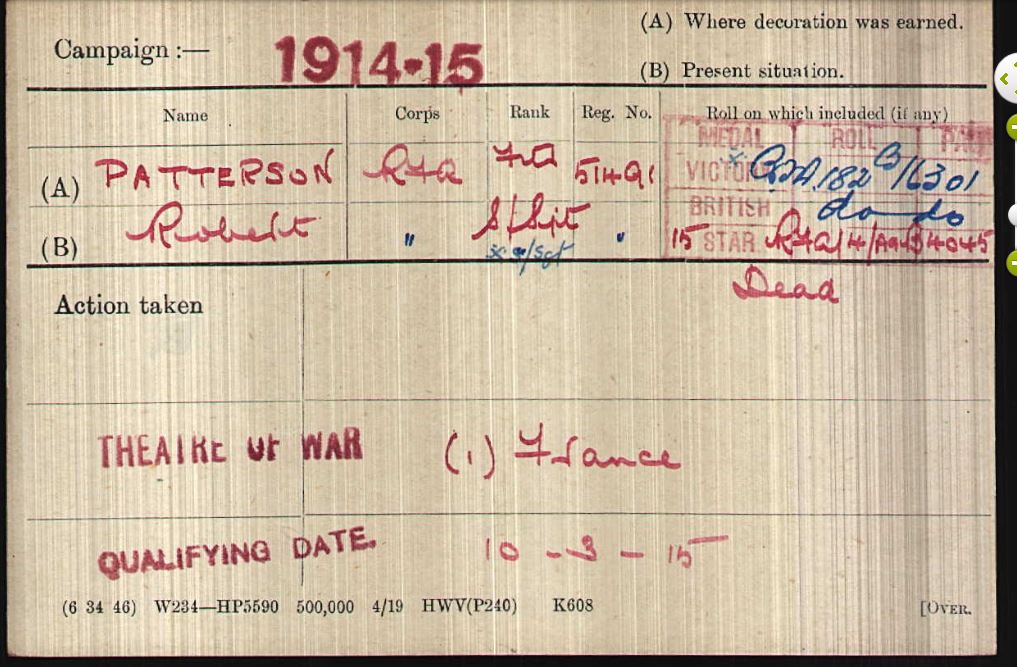 (A) Where decoration was earned.
Campaign :— 1914-15
(B) Present situation.
Name Corps Rank Reg. No. Roll on which included (if any)
MEDAL ROLL PAGE
(A) PATTERSON RFA 51491 VICTORY RFA 182 B/16301
(B) Robert " S/Sjt " BRITISH do do
x a/Sgt 15 STAR RFA/4/AaB 4045
Dead
Action taken
THEATRE OF WAR (1) France
QUALIFYING DATE. 10 - 3 - 15
(6 34 46) W234—HP5590 500,000 4/19 HWV(P240) K608 [OVER.